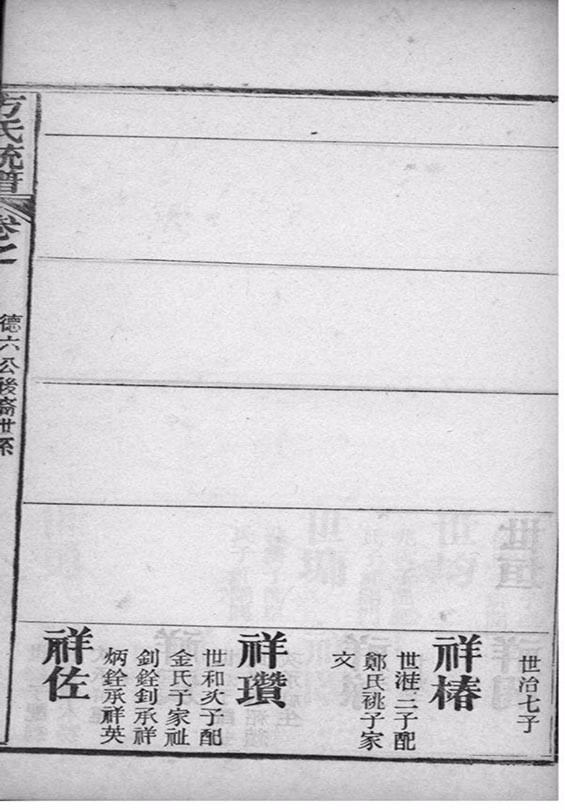 世治七子
祥椿
世溎二子配
鄭氏祧子家
文
祥瓚
世和次子配
金氏子家祉
釗銓釗承祥
炳銓承祥英
祥佐
方氏統譜
卷之
德六公後裔世系